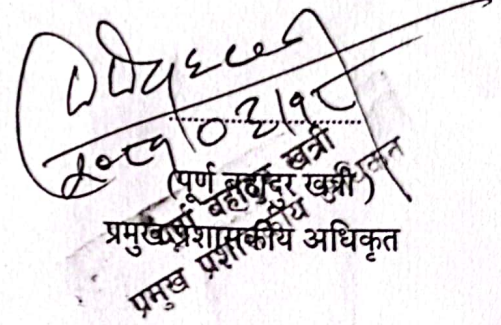 २०८१।०३।१८
(पूर्ण बहादुर खत्री)
प्रमुख प्रशासकीय अधिकृत
पूर्ण बहादुर खत्री
प्रमुख प्रशासकीय अधिकृत